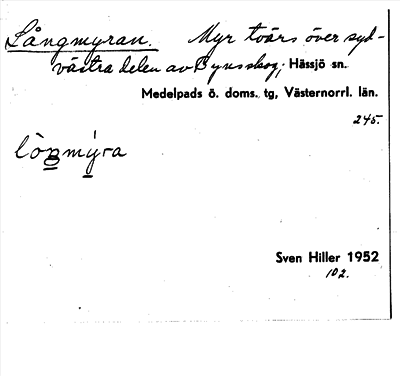 Långmyran. Myr tvärs över syd-
västra delen av Bynsskog; Hässjö sn.
Medelpads ö. doms. tg, Västernorrl. län.
245.
lò̱ŋmý̱ra
Sven Hiller 1952
102.